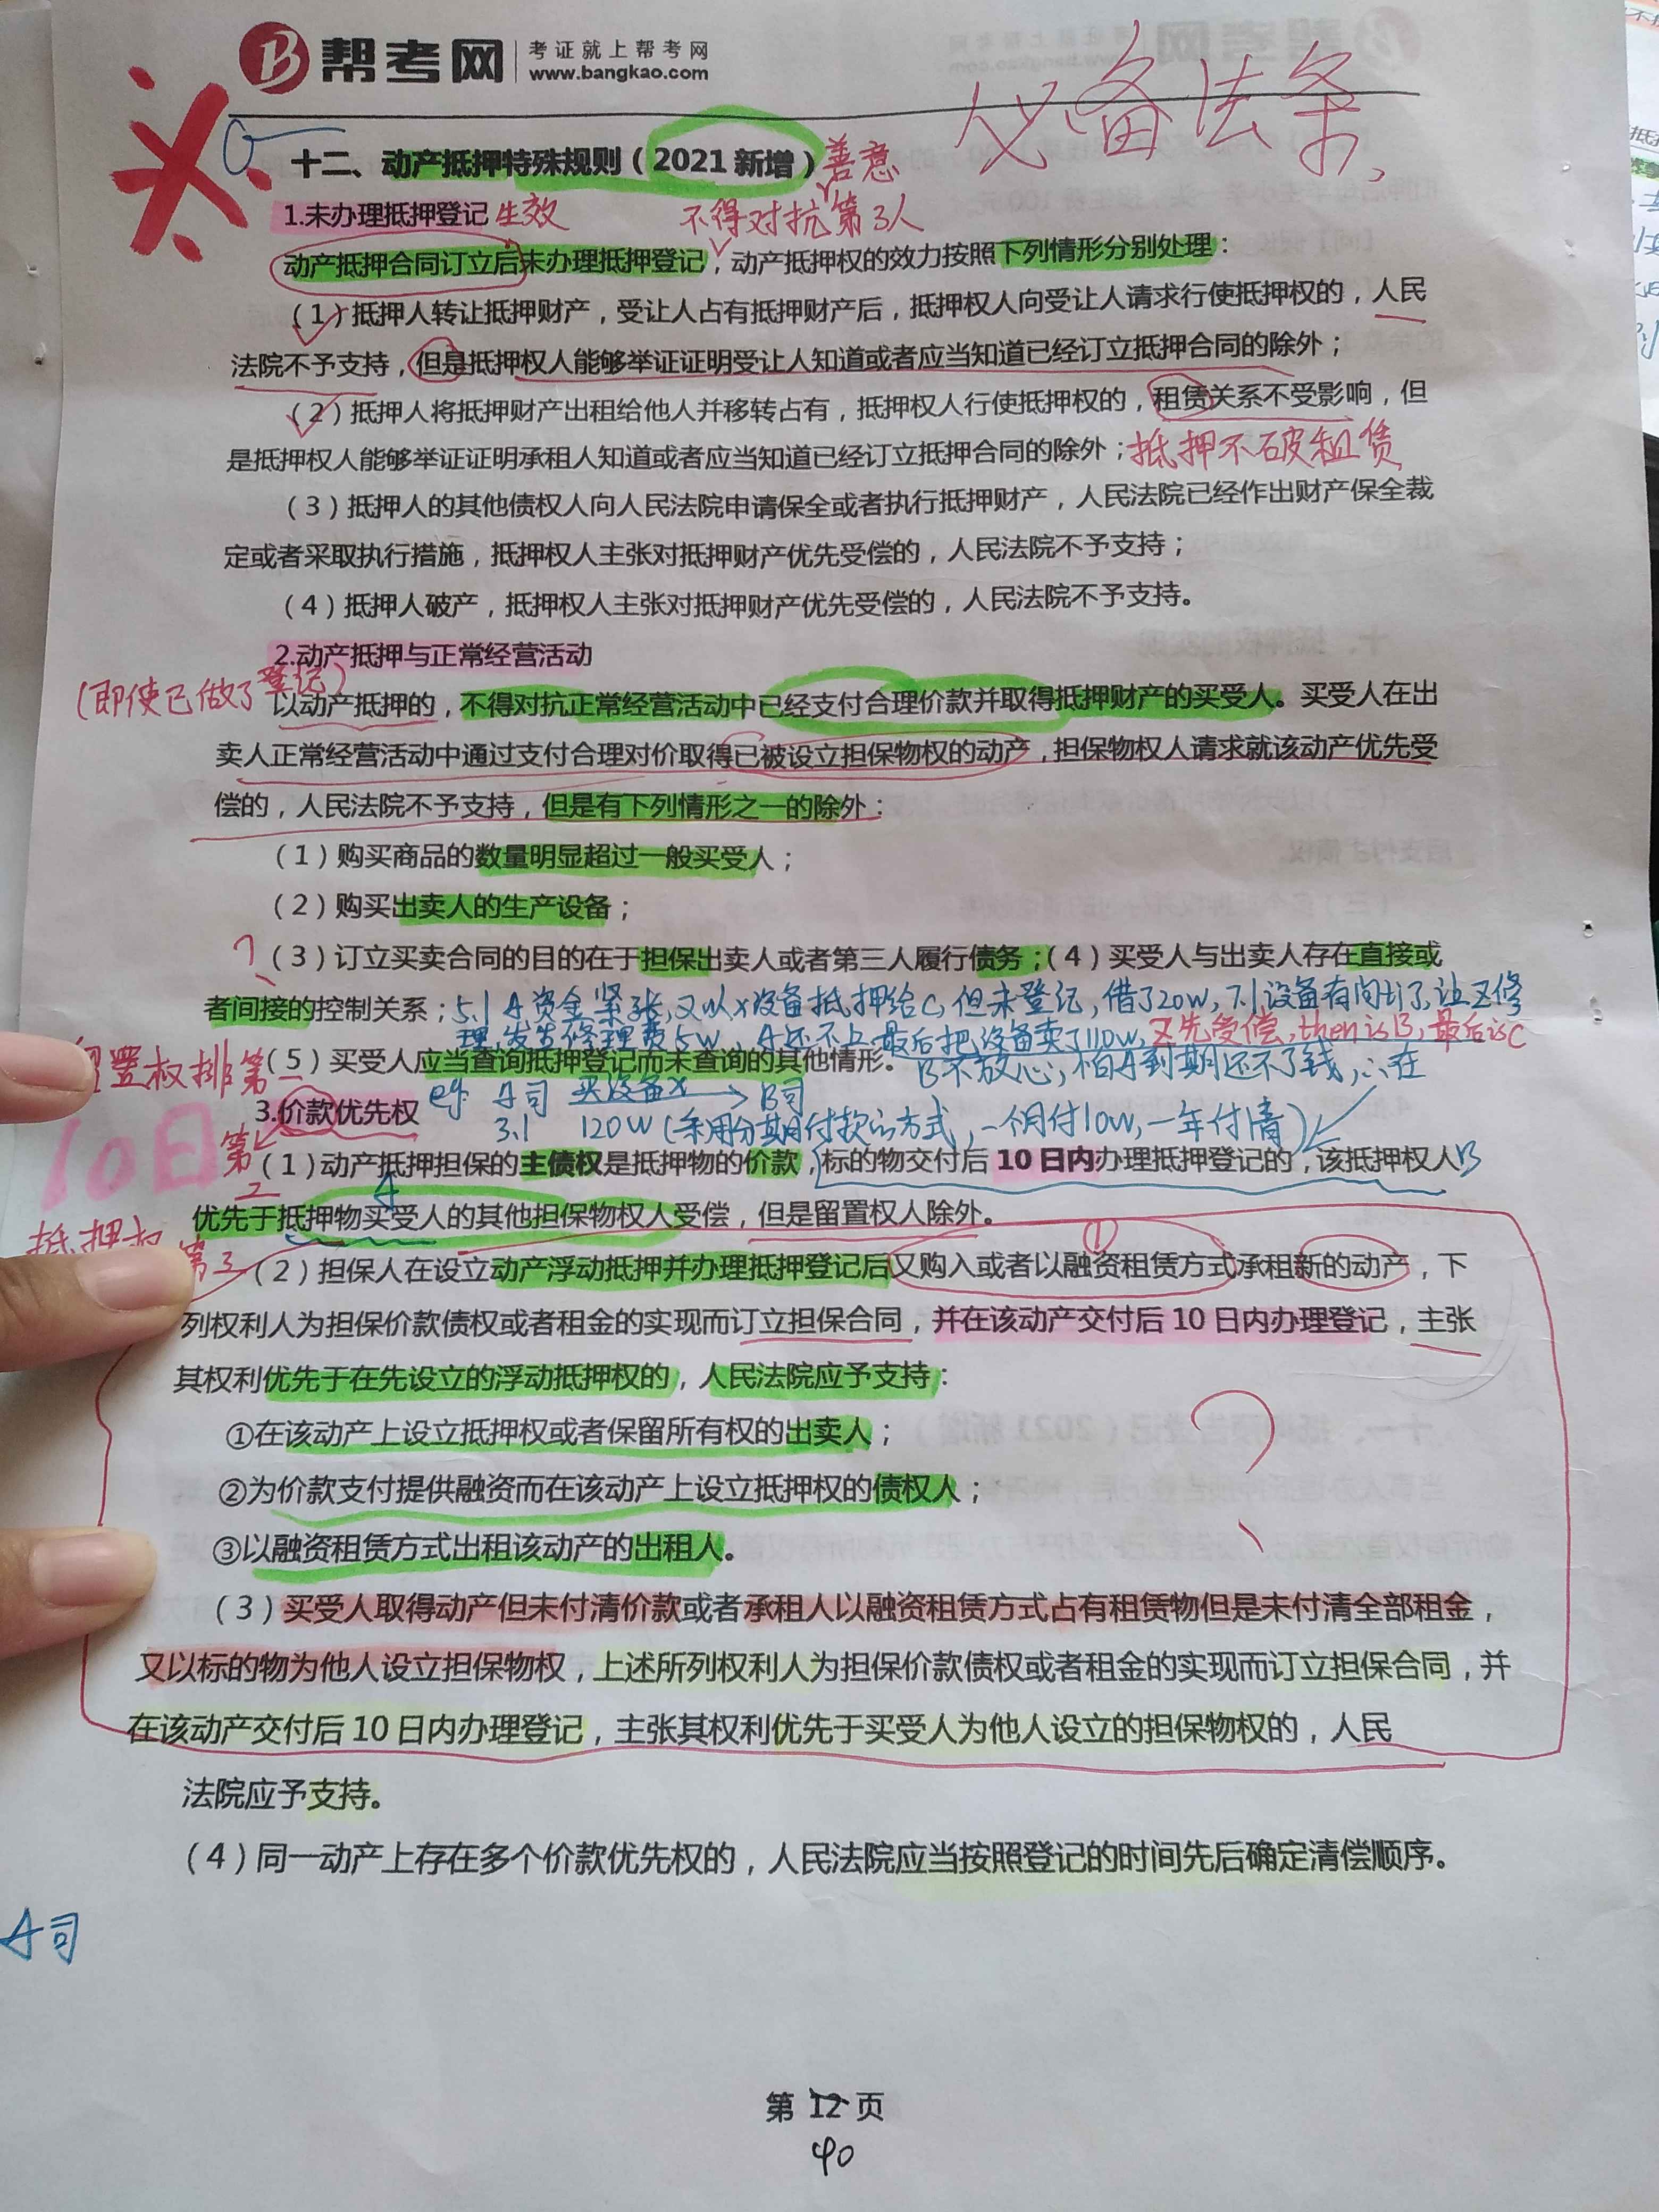 帮考网 考证就上帮考网
www.bangkao.com
必备法条
十二、动产抵押特殊规则（2021 新增）善意
1.未办理抵押登记 生效 不得对抗第3人
动产抵押合同订立后未办理抵押登记，动产抵押权的效力按照下列情形分别处理：
（1）抵押人转让抵押财产，受让人占有抵押财产后，抵押权人向受让人请求行使抵押权的，人民
法院不予支持，但是抵押权人能够举证证明受让人知道或者应当知道已经订立抵押合同的除外；
（2）抵押人将抵押财产出租给他人并移转占有，抵押权人行使抵押权的，租赁关系不受影响，但
是抵押权人能够举证证明承租人知道或者应当知道已经订立抵押合同的除外；抵押不破租赁
（3）抵押人的其他债权人向人民法院申请保全或者执行抵押财产，人民法院已经作出财产保全裁
定或者采取执行措施，抵押权人主张对抵押财产优先受偿的，人民法院不予支持；
（4）抵押人破产，抵押权人主张对抵押财产优先受偿的，人民法院不予支持。
2.动产抵押与正常经营活动
（即使已做了登记）
以动产抵押的，不得对抗正常经营活动中已经支付合理价款并取得抵押财产的买受人。买受人在出
卖人正常经营活动中通过支付合理对价取得已被设立担保物权的动产，担保物权人请求就该动产优先受
偿的，人民法院不予支持，但是有下列情形之一的除外：
（1）购买商品的数量明显超过一般买受人；
（2）购买出卖人的生产设备；
？（3）订立买卖合同的目的在于担保出卖人或者第三人履行债务；（4）买受人与出卖人存在直接或
者间接的控制关系；5.1 A资金紧张，又以x设备抵押给C，但未登记，借了20W，7.1设备有问题了，让Z修
理，发生修理费5W，A还不上最后把设备卖了110W，Z先受偿，then is B，最后is C
留置权排第一（5）买受人应当查询抵押登记而未查询的其他情形。B不放心，怕A到期还不了钱，∴在
3.价款优先权 eg. A司 买设备x → B司
3.1 120W（采用分期付款的方式，一个月付10W，一年付清）
10日
第2（1）动产抵押担保的主债权是抵押物的价款，标的物交付后 10 日内办理抵押登记的，该抵押权人B
A
优先于抵押物买受人的其他担保物权人受偿，但是留置权人除外。
抵押权 第三 ①
（2）担保人在设立动产浮动抵押并办理抵押登记后又购入或者以融资租赁方式承租新的动产，下
列权利人为担保价款债权或者租金的实现而订立担保合同，并在该动产交付后 10 日内办理登记，主张
其权利优先于在先设立的浮动抵押权的，人民法院应予支持：
①在该动产上设立抵押权或者保留所有权的出卖人；
②为价款支付提供融资而在该动产上设立抵押权的债权人；
③以融资租赁方式出租该动产的出租人。
？
（3）买受人取得动产但未付清价款或者承租人以融资租赁方式占有租赁物但是未付清全部租金，
又以标的物为他人设立担保物权，上述所列权利人为担保价款债权或者租金的实现而订立担保合同，并
在该动产交付后 10 日内办理登记，主张其权利优先于买受人为他人设立的担保物权的，人民
法院应予支持。
（4）同一动产上存在多个价款优先权的，人民法院应当按照登记的时间先后确定清偿顺序。
A司
第 12 页
40